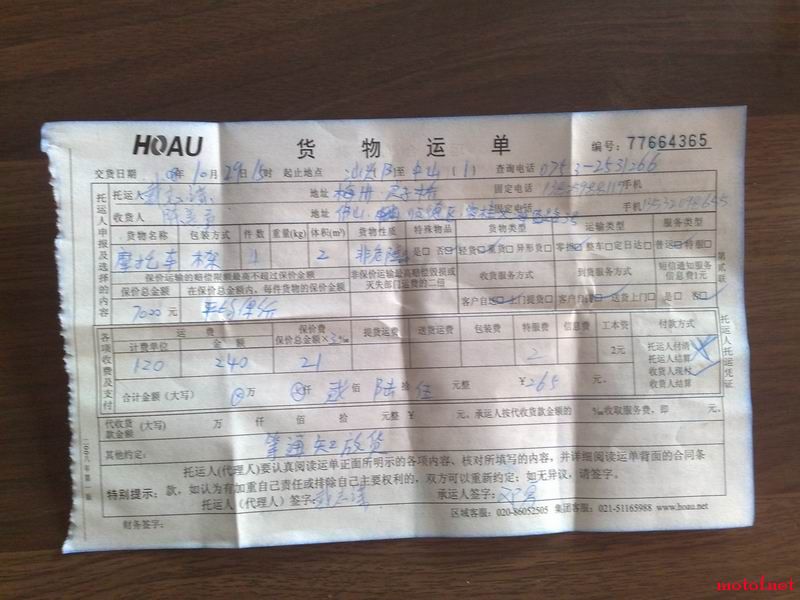 HOAU 货物运单 编号: 77664365
交货日期 年10月29日15时 起止地点 至中山(1) 查询电话 0753-2531266
托运人 地址 梅州 固定电话 手机
收货人 地址 佛山 固定电话 手机
托运人申报及选择的内容
货物名称 包装方式 件数 重量(kg) 体积(m³) 货物性质 特殊物品 货物类型 运输类型 服务类型
摩托车 木架 1 2 非危险 是□ 否□ 轻货□重货□异形货□ 零担□整车□定日达□ 普运□特服□
保价运输的赔偿限额最高不超过保价金额 非保价运输最高赔偿毁损或灭失部门运费的二倍 收货方式服务 到货方式服务 短信通知服务 信息费1元
保价总金额 在保价总金额内、每件货物的保价金额 客户自送□上门提货□ 客户自提□送货上门□ 是□ 否□
7000元 平均保价
各项收费及支付
运费 保价费 提货运费 送货运费 包装费 特服费 信息费 工本费 付款方式
计费单位 金额 保价总金额×3‰ 托运人付清
120 240 21 2 2元 托运人结算
收货人现付
收货人结算
合计金额(大写) ⊗万 ⊗仟 贰佰 陆拾 伍元整 ¥265元.
代收货款金额 (大写) 万 仟 佰 拾 元整 ¥ 元、承运人按代收货款金额的 ‰收取服务费,即 元。
其他约定: 等通知放货
特别提示: 托运人(代理人)要认真阅读运单正面所明示的各项内容、核对所填写的内容,并详细阅读运单背面的合同条
款,如认为有加重自己责任或排除自己主要权利的,双方可以重新约定;如无异议,请签字。
托运人(代理人)签字: 承运人签字:
财务签字: 区域客服:020-86052505 集团客服:021-51165988 www.hoau.net
第贰联 托运人托运凭证
motof.net